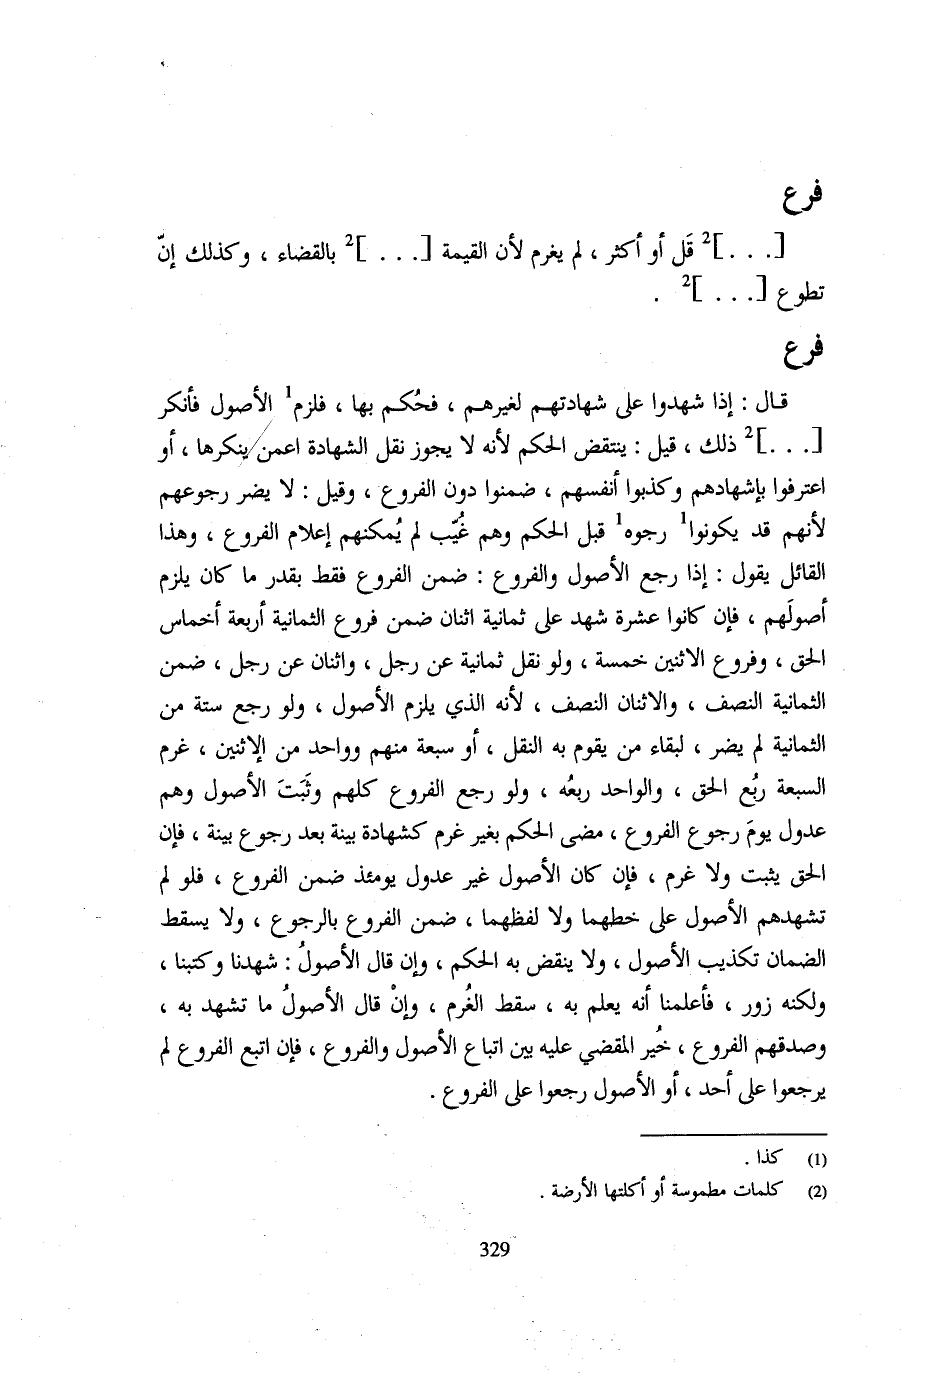 فرع
[. . .]2 قَل أو أكثر ، لم يغرم لأن القيمة [. . .]2 بالقضاء ، وكذلك إنّ
تطوع [. . .]2 .
فرع
قال : إذا شهدوا على شهادتهم لغيرهم ، فحُكم بها ، فلزم1 الأصول فأنكر
[. . .]2 ذلك ، قيل : ينتقض الحكم لأنه لا يجوز نقل الشهادة اعمن ينكرها ، أو
اعترفوا بإشهادهم وكذبوا أنفسهم ، ضمنوا دون الفروع ، وقيل : لا يضر رجوعهم
لأنهم قد يكونوا1 رجوه1 قبل الحكم وهم غُيّب لم يُمكنهم إعلام الفروع ، وهذا
القائل يقول : إذا رجع الأصول والفروع : ضمن الفروع فقط بقدر ما كان يلزم
أصولَهم ، فإن كانوا عشرة شهد على ثمانية اثنان ضمن فروع الثمانية أربعة أخماس
الحق ، وفروع الاثنين خمسة ، ولو نقل ثمانية عن رجل ، واثنان عن رجل ، ضمن
الثمانية النصف ، والاثنان النصف ، لأنه الذي يلزم الأصول ، ولو رجع ستة من
الثمانية لم يضر ، لبقاء من يقوم به النقل ، أو سبعة منهم وواحد من الإثنين ، غرم
السبعة رُبُع الحق ، والواحد ربعُه ، ولو رجع الفروع كلهم وثَبَتَ الأصول وهم
عدول يومَ رجوع الفروع ، مضى الحكم بغير غرم كشهادة بينة بعد رجوع بينة ، فإن
الحق يثبت ولا غرم ، فإن كان الأصول غير عدول يومئذ ضمن الفروع ، فلو لم
تشهدهم الأصول على خطهما ولا لفظهما ، ضمن الفروع بالرجوع ، ولا يسقط
الضمان تكذيب الأصول ، ولا ينقض به الحكم ، وإن قال الأصولُ : شهدنا وكتبنا ،
ولكنه زور ، فأعلمنا أنه يعلم به ، سقط الغُرم ، وإنْ قال الأصولُ ما تشهد به ،
وصدقهم الفروع ، خُير المقضي عليه بين اتباع الأصول والفروع ، فإن اتبع الفروع لم
يرجعوا على أحد ، أو الأصول رجعوا على الفروع .
(1) كذا .
(2) كلمات مطموسة أو أكلتها الأرضة .
329